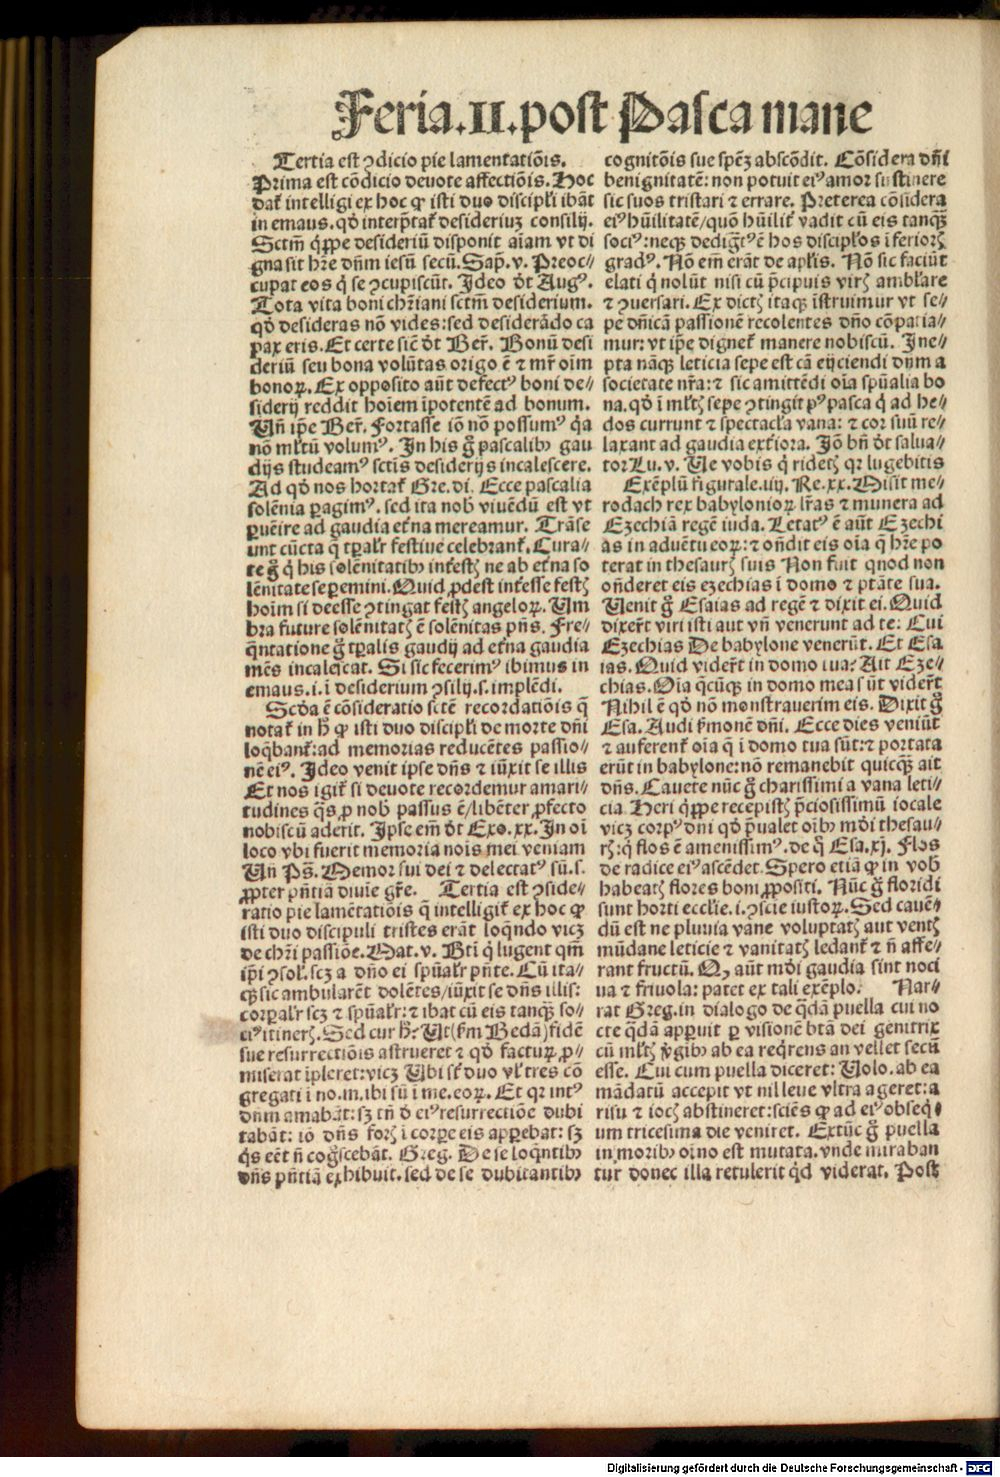 Feria.II.post Pasca mane
Tertia est ꝯdicio pie lamentatiōis.
Prima est cōdicio deuote affectiōis. Hoc
daẗ intelligi ex hoc ꝙ isti duo discipłi ibāt
in emaus. qd̓ interp̄tať desideriuꝫ consilij.
Sctm̄ q̄ꝓpe desideriū disponit aīam vt di
gna sit hr̄e dn̄m iesū secū. Sap̄. v. Preoc⸗
cupat eos q̇ se ꝯcupiscūt. Ideo d̓t Augꝰ.
Tota vita boni chr̄iani sctm̄ desiderium.
qd̓ desideras nō vides: sed desiderādo ca
pax eris. Et certe sic̄ d̓t Ber̄. Bonū desi
deriū seu bona volūtas origo ē ⁊ mr̄ oīm
bonoꝝ. Ex opposito aūt defectꝰ boni de⸗
siderij reddit hoīem īpotentē ad bonum.
Un̄ ip̄e Ber̄. Fortasse iō nō possumꝰ q̇a
nō mł̄tū volumꝰ. In his g̊ pascalibꝫ gau
dijs studeamꝰ sct̄is desiderijs incalescere.
Ad qd̓ nos hortať Gre. di. Ecce pascalia
solēnia ꝑagimꝰ. sed ita nob̄ viuēdū est vt
ꝑuēire ad gaudia et̓na mereamur. Trāse
unt cūcta q̄ tꝑalr̄ festiue celebranť. Cura⸗
te g̊ q̇ his solēnitatibꝫ int̓estꝭ ne ab et̓na so
lēnitate seꝑemini. Quid ꝓdest int̓esse festꝭ
hoīm si deesse ꝯtingat festꝭ angeloꝝ. Um
bra future solēnitatꝭ ē solēnitas pn̄s. Fre⸗
q̄ntatione g̊ tꝑalis gaudij ad et̓na gaudia
mēs incalescat. Si sic fecerimꝰ ibimus in
emaus. i. ī desiderium ꝯsilij. s. implēdi.
Scd̓a ē cōsideratio sctē recordatiōis q̄
notať in h̄ ꝙ isti duo discipłi de morte dn̄i
loq̄banť: ad memorias reducētes passio⸗
nē eiꝰ. Ideo venit ipse dn̄s ⁊ iūxit se illis
Et nos igiť si deuote recordemur amari⸗
tudines q̄s ꝓ nob̄ passus ē/ libēter ꝓfecto
nobiscū aderit. Ipse em̄ d̓t Exo. xx. In oī
loco vbi fuerit memoria noīs mei veniam
Un̄ Ps̄. Memor fui dei ⁊ delectatꝰ sū. s.
ꝓpter pn̄tiā diuīe gr̄e. Tertia est ꝯside⸗
ratio pie lamētatiōis q̄ intelligiť ex hoc ꝙ
isti duo discipuli tristes erāt loq̄ndo vicꝫ
de chr̄i passiōe. Mat. v. Bt̄i q̇ lugent qm̄
ip̄i ꝯsoł. scꝫ a dn̄o ei spūalr̄ pn̄te. Cū ita⸗
qꝫ sic ambularēt dolētes/ iūxit se dn̄s illis:
corꝑalr̄ scꝫ ⁊ spūalr̄: ⁊ ibat cū eis tanqꝫ so⸗
ciꝰ itinerꝭ. Sed cur h̄? Ut (s̓m Bedā) fidē
sue resurrectiōis astrueret ⁊ qd̓ facturꝝ ꝓ⸗
miserat īpleret: vicꝫ Ubi s̓t duo vł tres cō
gregati ī no. m. ibi sū ī me. eoꝝ. Et qr intꝰ
dn̄m amabāt: sꝫ tn̄ d̓ eiꝰ resurrectiōe dubi
tabāt: iō dn̄s forꝭ ī corꝑe eis apꝑebat: sꝫ
q̇s eēt n̄ cog̊scebāt. Greg. De se loq̄ntibꝫ
dn̄s pn̄tiā exhibuit. sed de se dubitantibꝫ
cognitōis sue spēꝫ abscōdit. Cōsidera dn̄i
benignitatē: non potuit eiꝰ amor sustinere
sic suos tristari ⁊ errare. Preterea cōsidera
eiꝰ hūilitatē/ quō hūiliť vadit cū eis tanqꝫ
sociꝰ: neqꝫ dedig̊tꝰ ē hos discipłos īferiorꝭ
gradꝰ. Nō em̄ erāt de apłis. Nō sic faciūt
elati q̇ nolūt nisi cū p̄cipuis virꝭ ambłare
⁊ ꝯuersari. Ex dictꝭ itaqꝫ īstruimur vt se⸗
pe dn̄icā passionē recolentes dn̄o cōpatia⸗
mur: vt ip̄e digneť manere nobiscū. Ine⸗
pta nāqꝫ leticia sepe est cā eijciendi dn̄m a
societate nr̄a: ⁊ sic amittēdi oīa spūalia bo
na. qd̓ ī mł̄tꝭ sepe ꝯtingit pꝰ pasca q̇ ad he⸗
dos currunt ⁊ spectacła vana: ⁊ cor suū re⸗
laxant ad gaudia ext̓iora. Iō bn̄ d̓t salua⸗
tor Lu. v. Ue vobis q̇ ridetꝭ qr lugebitis
Exēplū figurale. iiij. Re. xx. Misit me⸗
rodach rex babylonioꝝ lr̄as ⁊ munera ad
Ezechiā regē iuda. Letatꝰ ē aūt Ezechi
as in aduētu eoꝝ: ⁊ on̄dit eis oīa q̄ hr̄e po
terat in thesaurꝭ suis Non fuit quod non
on̄deret eis ezechias ī domo ⁊ ptāte sua.
Uenit g̊ Esaias ad regē ⁊ dixit ei. Quid
dixer̄t viri isti aut vn̄ venerunt ad te: Cui
Ezechias De babylone venerūt. Et Esa
ias. Quid vider̄t in domo tua? Ait Eze⸗
chias. Oīa q̄cūqꝫ in domo mea sūt vider̄t
Nihil ē qd̓ nō monstrauerim eis. Dixit g̊
Esa. Audi s̓monē dn̄i. Ecce dies veniūt
⁊ auferenť oīa q̄ ī domo tua sūt: ⁊ portata
erūt in babylone: nō remanebit quicqꝫ ait
dn̄s. Cauete nūc g̊ charissimi a vana leti⸗
cia. Heri q̄ꝓpe recepistꝭ p̄ciosissimū iocale
vicꝫ corpꝰ dn̄i qd̓ p̄ualet oībꝫ mūdi thesau⸗
rꝭ: q̇ flos ē amenissimꝰ. de q̊ Esa. xj. Flos
de radice eiꝰ ascēdet. Spero etiā ꝙ in vob̄
habeatꝭ flores boni ꝓpositi. Nūc g̊ floridi
sunt horti ecclīe. i. ꝯscie iustoꝝ. Sed cauē⸗
dū est ne pluuia vane voluptatꝭ aut ventꝭ
mūdane leticie ⁊ vanitatꝭ ledanť ⁊ n̄ affe⸗
rant fructū. Qꝫ aūt mūdi gaudia sint noci
ua ⁊ friuola: patet ex tali exēplo. Nar⸗
rat Greg. in dialogo de q̄dā puella cui no
cte q̄dā apꝑuit ꝑ visionē btā dei genitrix
cū mł̄tꝭ v̓gibꝫ ab ea req̄rens an vellet secū
esse. Cui cum puella diceret: Uolo. ab ea
mādatū accepit vt nil leue vltra ageret: a
risu ⁊ iocꝭ abstineret: sciēs ꝙ ad eiꝰ obseq̇
um tricesima die veniret. Extūc g̊ puella
in moribꝫ oīno est mutata. vnde miraban
tur donec illa retulerit q̇d viderat. Post
Digitalisierung gefördert durch die Deutsche Forschungsgemeinschaft - DFG